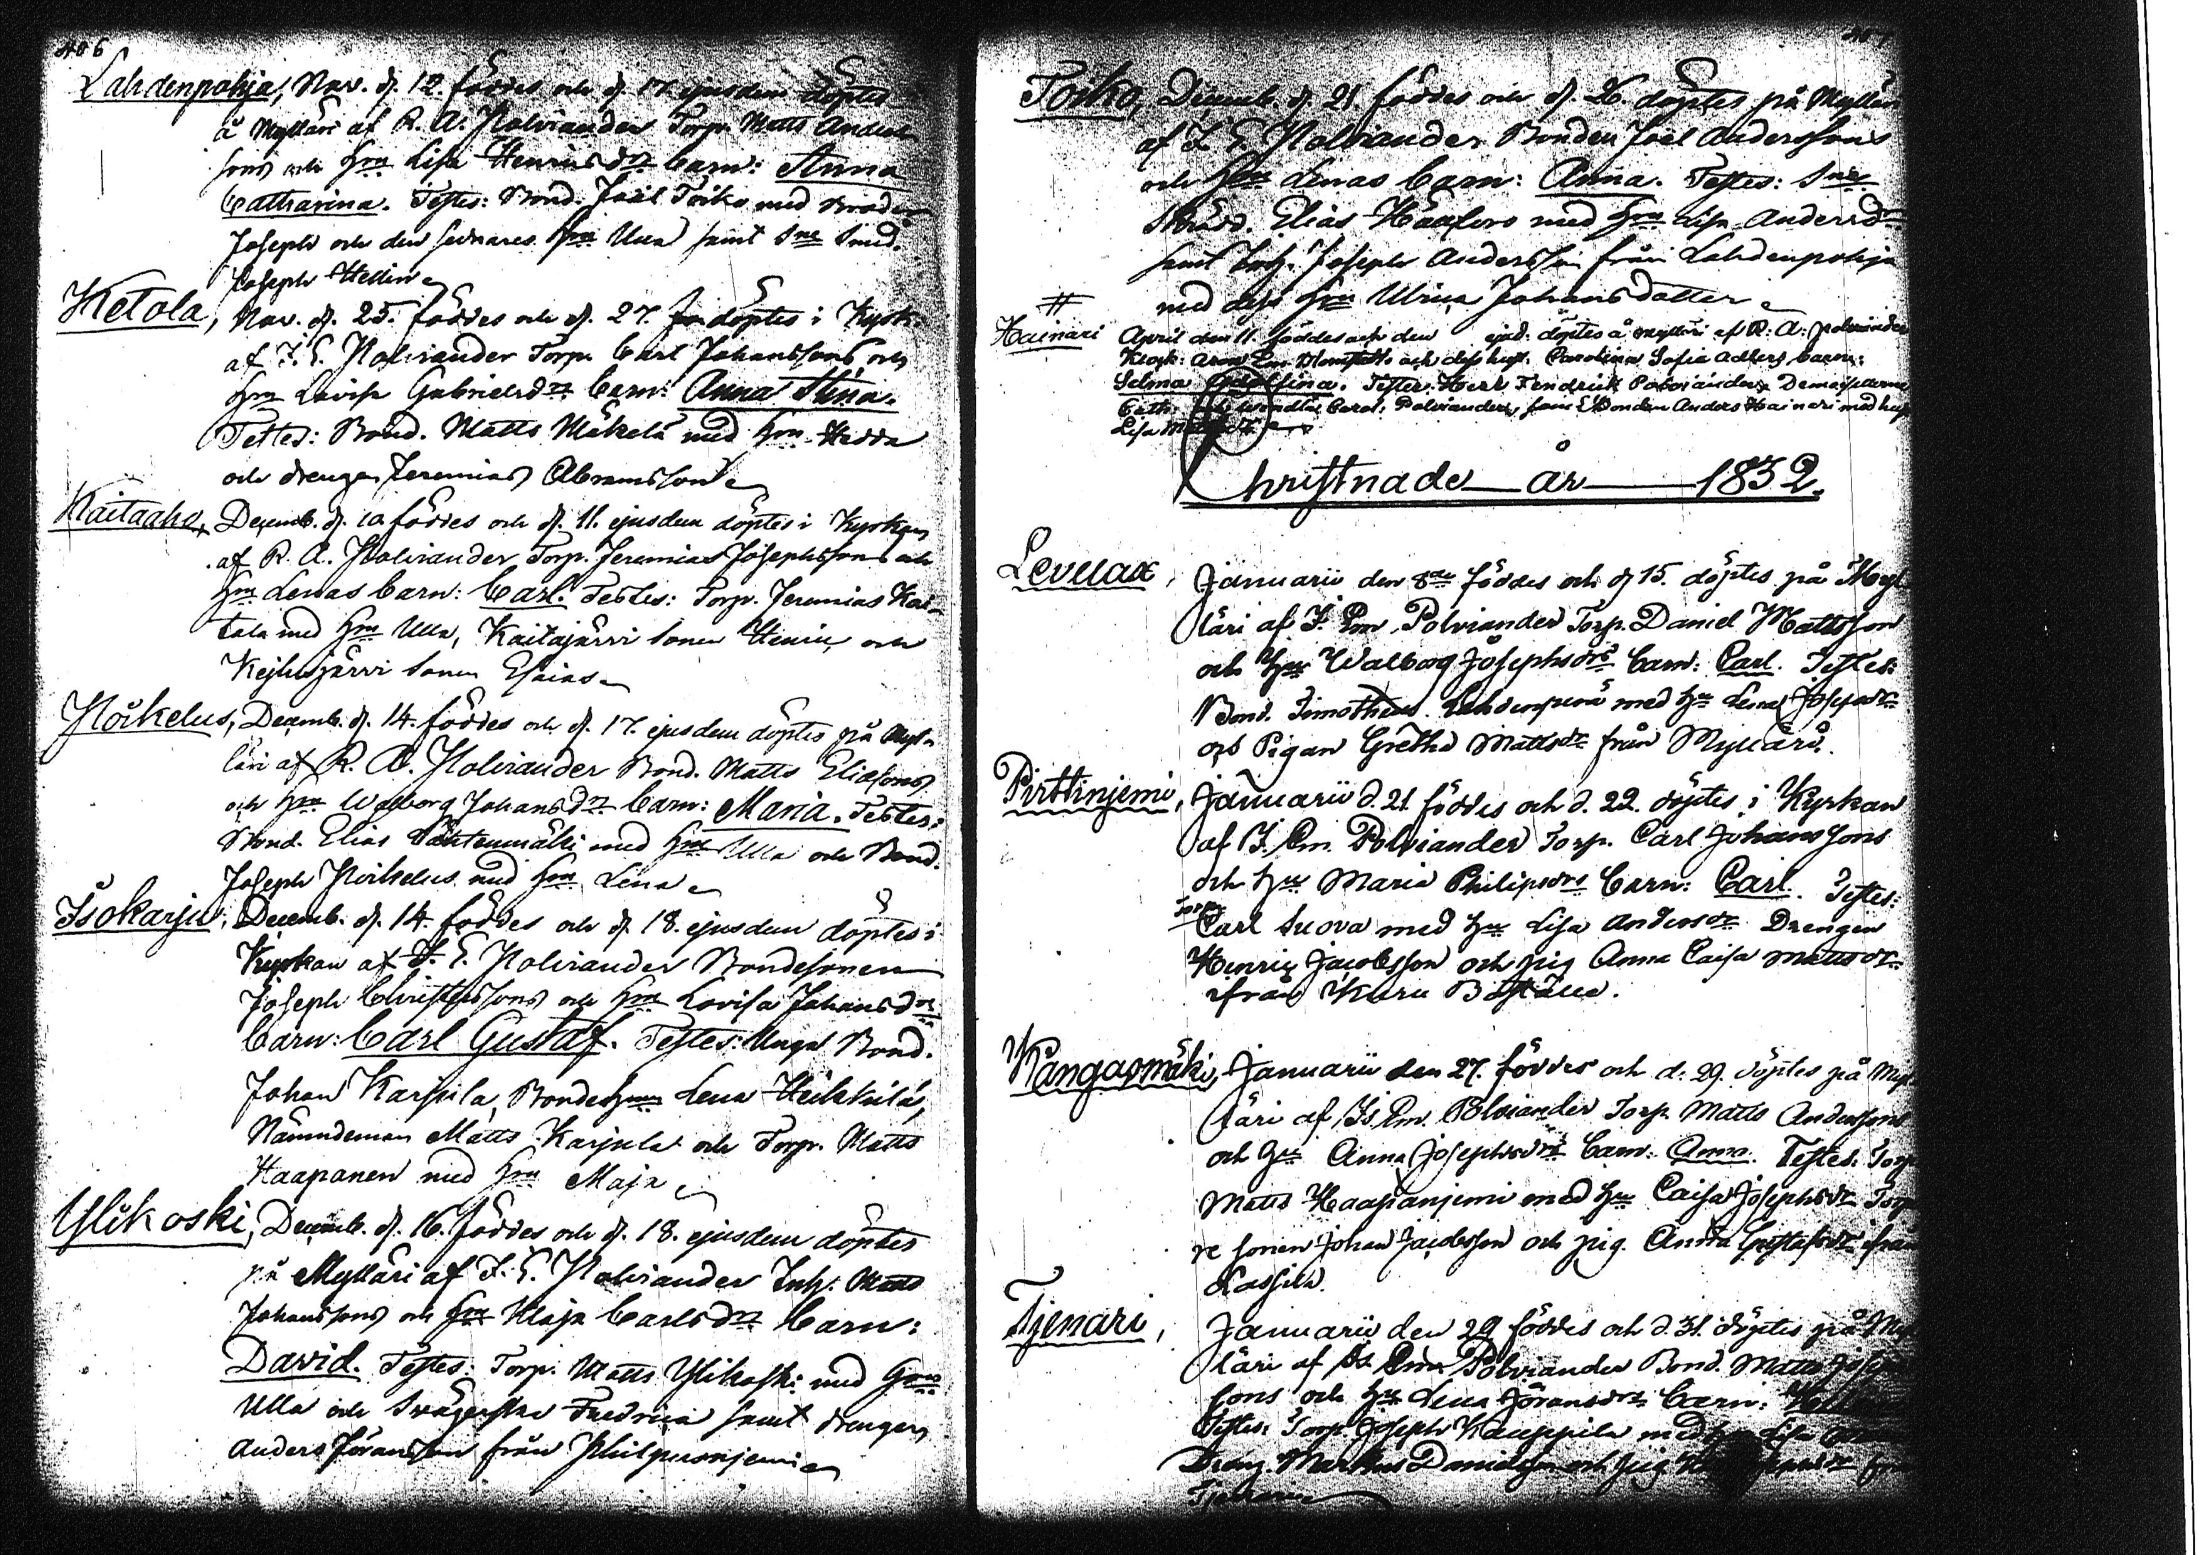 406
Lahdenpohja, Nov. d. 12. föddes och d. 17. ejusdem döptes
å Mylläri af R. A. Polviander Torp. Matts Anders
sons och Hru Lisa Henricsdrs barn: Anna
Catharina. Testes: Bond. Joël Toiko med Broder
Joseph och den sednares Hru Ulla samt Sne Smed.
Joseph Hellin
Ketola, Nov. d. 25. föddes och d. 27. döptes i Kyrk.
af I. E. Polviander Torp. Carl Johanssons och
Hru Lovisa Gabrielsdrs barn: Anna Stina.
Testes: Bond. Matts Mäkelä med Hru Hedda
och drengen Jeremias Abramsson
Kaitaaho, Decemb. d. 10 föddes och d. 11. ejusdem döptes i Kyrkan
af R. A. Polviander Torp. Jeremias Josephssons och
Hru Lenas barn: Carl. Testes: Torp. Jeremias
med Hru Ulla, Kaitajärvi sonen Henric och
Kejhesjärvi sonen Esaias
Decemb. d. 14. föddes och d. 17. ejusdem döptes på Myl-
läri af R. A. Polviander Bond. Matts Eliassons
och Hru Walborg Johansdrs barn: Maria. Testes:
Bond. Elias med Hru Ulla och Bond.
Joseph med Hru Lena
Isokarju, Decemb. d. 14. föddes och d. 18. ejusdem döptes i
Kyrkan af I. E. Polviander Bondesonen
Joseph Christerssons och Hru Lovisa Johansdrs
barn: Carl Gustaf. Testes: Unga Bond.
Johan Karjula, Bondehru Lena Heikkilä,
Nämndeman Matts Karjula och Torp. Matts
Haapanen med Hru Maja
Ylikoski, Decemb. d. 16. föddes och d. 18. ejusdem döptes
på Mylläri af I. E. Polviander Inh. Matts
Johanssons och Hru Maja Carlsdrs barn:
David. Testes: Torp. Matts Ylikoski med Hru
Ulla och Svägerska Fredrica samt drengen
Anders Göransson från
Toiko, Decemb. d. 21. föddes och d. 26. döptes på Myllär
af I. E. Polviander Bonden Joel Anderssons
och Hru Lenas barn: Anna. Testes: Sne
Skrädd. Elias Haafors med Hru Lisa Andersdr
samt Inh. Joseph Andersson från Lahdenpohja
med dess Hru Ulrica Johansdotter
#
Hainari April den 11. föddes och den ejsd. döptes å Mylläri af R. A. Polviander
Klock: och dess hust. Carolina Sofia barn:
Selma. Testes: Herr Fendrick Polviander, Demoisellerna
Cath. och Carol. Polviander, samt Bonden Anders Hainari med hust
Lisa
Christnade år 1832.
Levelax, Januarii den 8de föddes och d 15. döptes på Myl
läri af I. Em. Polviander Torp. Daniel Mattsson
och Hru Walborg Josephsdrs barn: Carl. Testes:
Bond. Timotheus med Hru Lena Josephsdr
och Pigan Gretha Mattsdr från Mylläri.
Pirttinjemi, Januarii d. 21 föddes och d. 22. döptes i Kyrkan
af I. Em. Polviander Torp. Carl Johanssons
och Hru Maria Philipsdrs barn: Carl. Testes:
Torp. Carl Suova med Hru Lisa Andersdr Drengen
Henric Jacobsson och pig Anna Caisa Mattsdr
ifrån Kuru Boställe.
Kangasmäki, Januarii den 27. föddes och d. 29. döptes på Myl
läri af Is. Em. Polviander Torp. Matts Anderssons
och Hru Anna Josephsdrs barn: Anna. Testes: Torp
Matts Haapanjemi med Hru Caisa Josephsdr Torp
re sonen Johan Jacobsson och pig. Anna Gustafsdr ifrån
Lassila.
Tjenari, Januarii den 29 föddes och d. 31. döptes på My
läri af Is. Em. Polviander Bond. Matts
sons och Hru Lena Göransdrs barn:
Testes: Torp. Joseph Kauppila med Lisa
Dräng. Markus Danielsson och pig